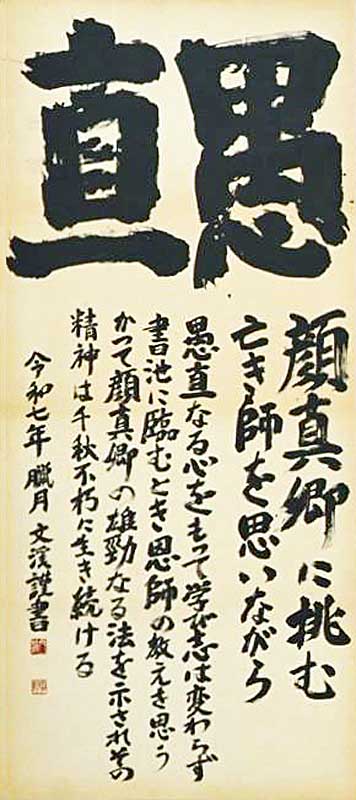 愚直
顔真卿に挑む
亡き師を思いながら
愚直なる心をもって学び志は変わらず
書池に臨むとき恩師の教えを思う
かつて顔真卿の雄勁なる法を示されその
精神は千秋不朽に生き続ける
令和七年 臘月 文渓謹書